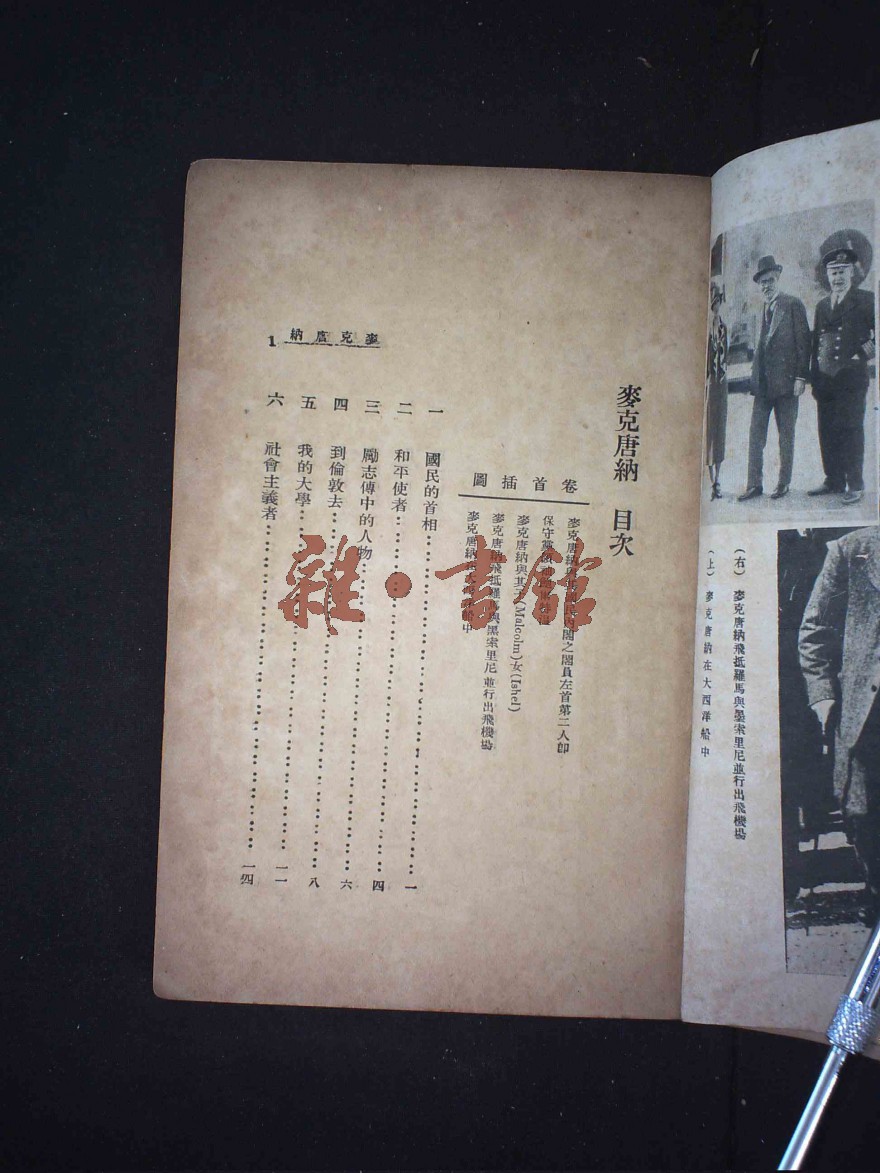 (右) 麥克唐納飛抵羅馬與墨索里尼並行出飛機場
(上) 麥克唐納在大西洋船中
麥克唐納 目次
卷首插圖
麥克唐納與其國民內閣之閣員左首第二人即
保守黨領袖
麥克唐納與其子(Malcolm)女(Ishel)
麥克唐納飛抵羅馬與墨索里尼並行出飛機場
麥克唐納在大西洋船中
一 國民的首相……一
二 和平使者……四
三 勵志傳中的人物……六
四 到倫敦去……八
五 我的大學……一一
六 社會主義者……一四
麥克唐納 1
雜·書館